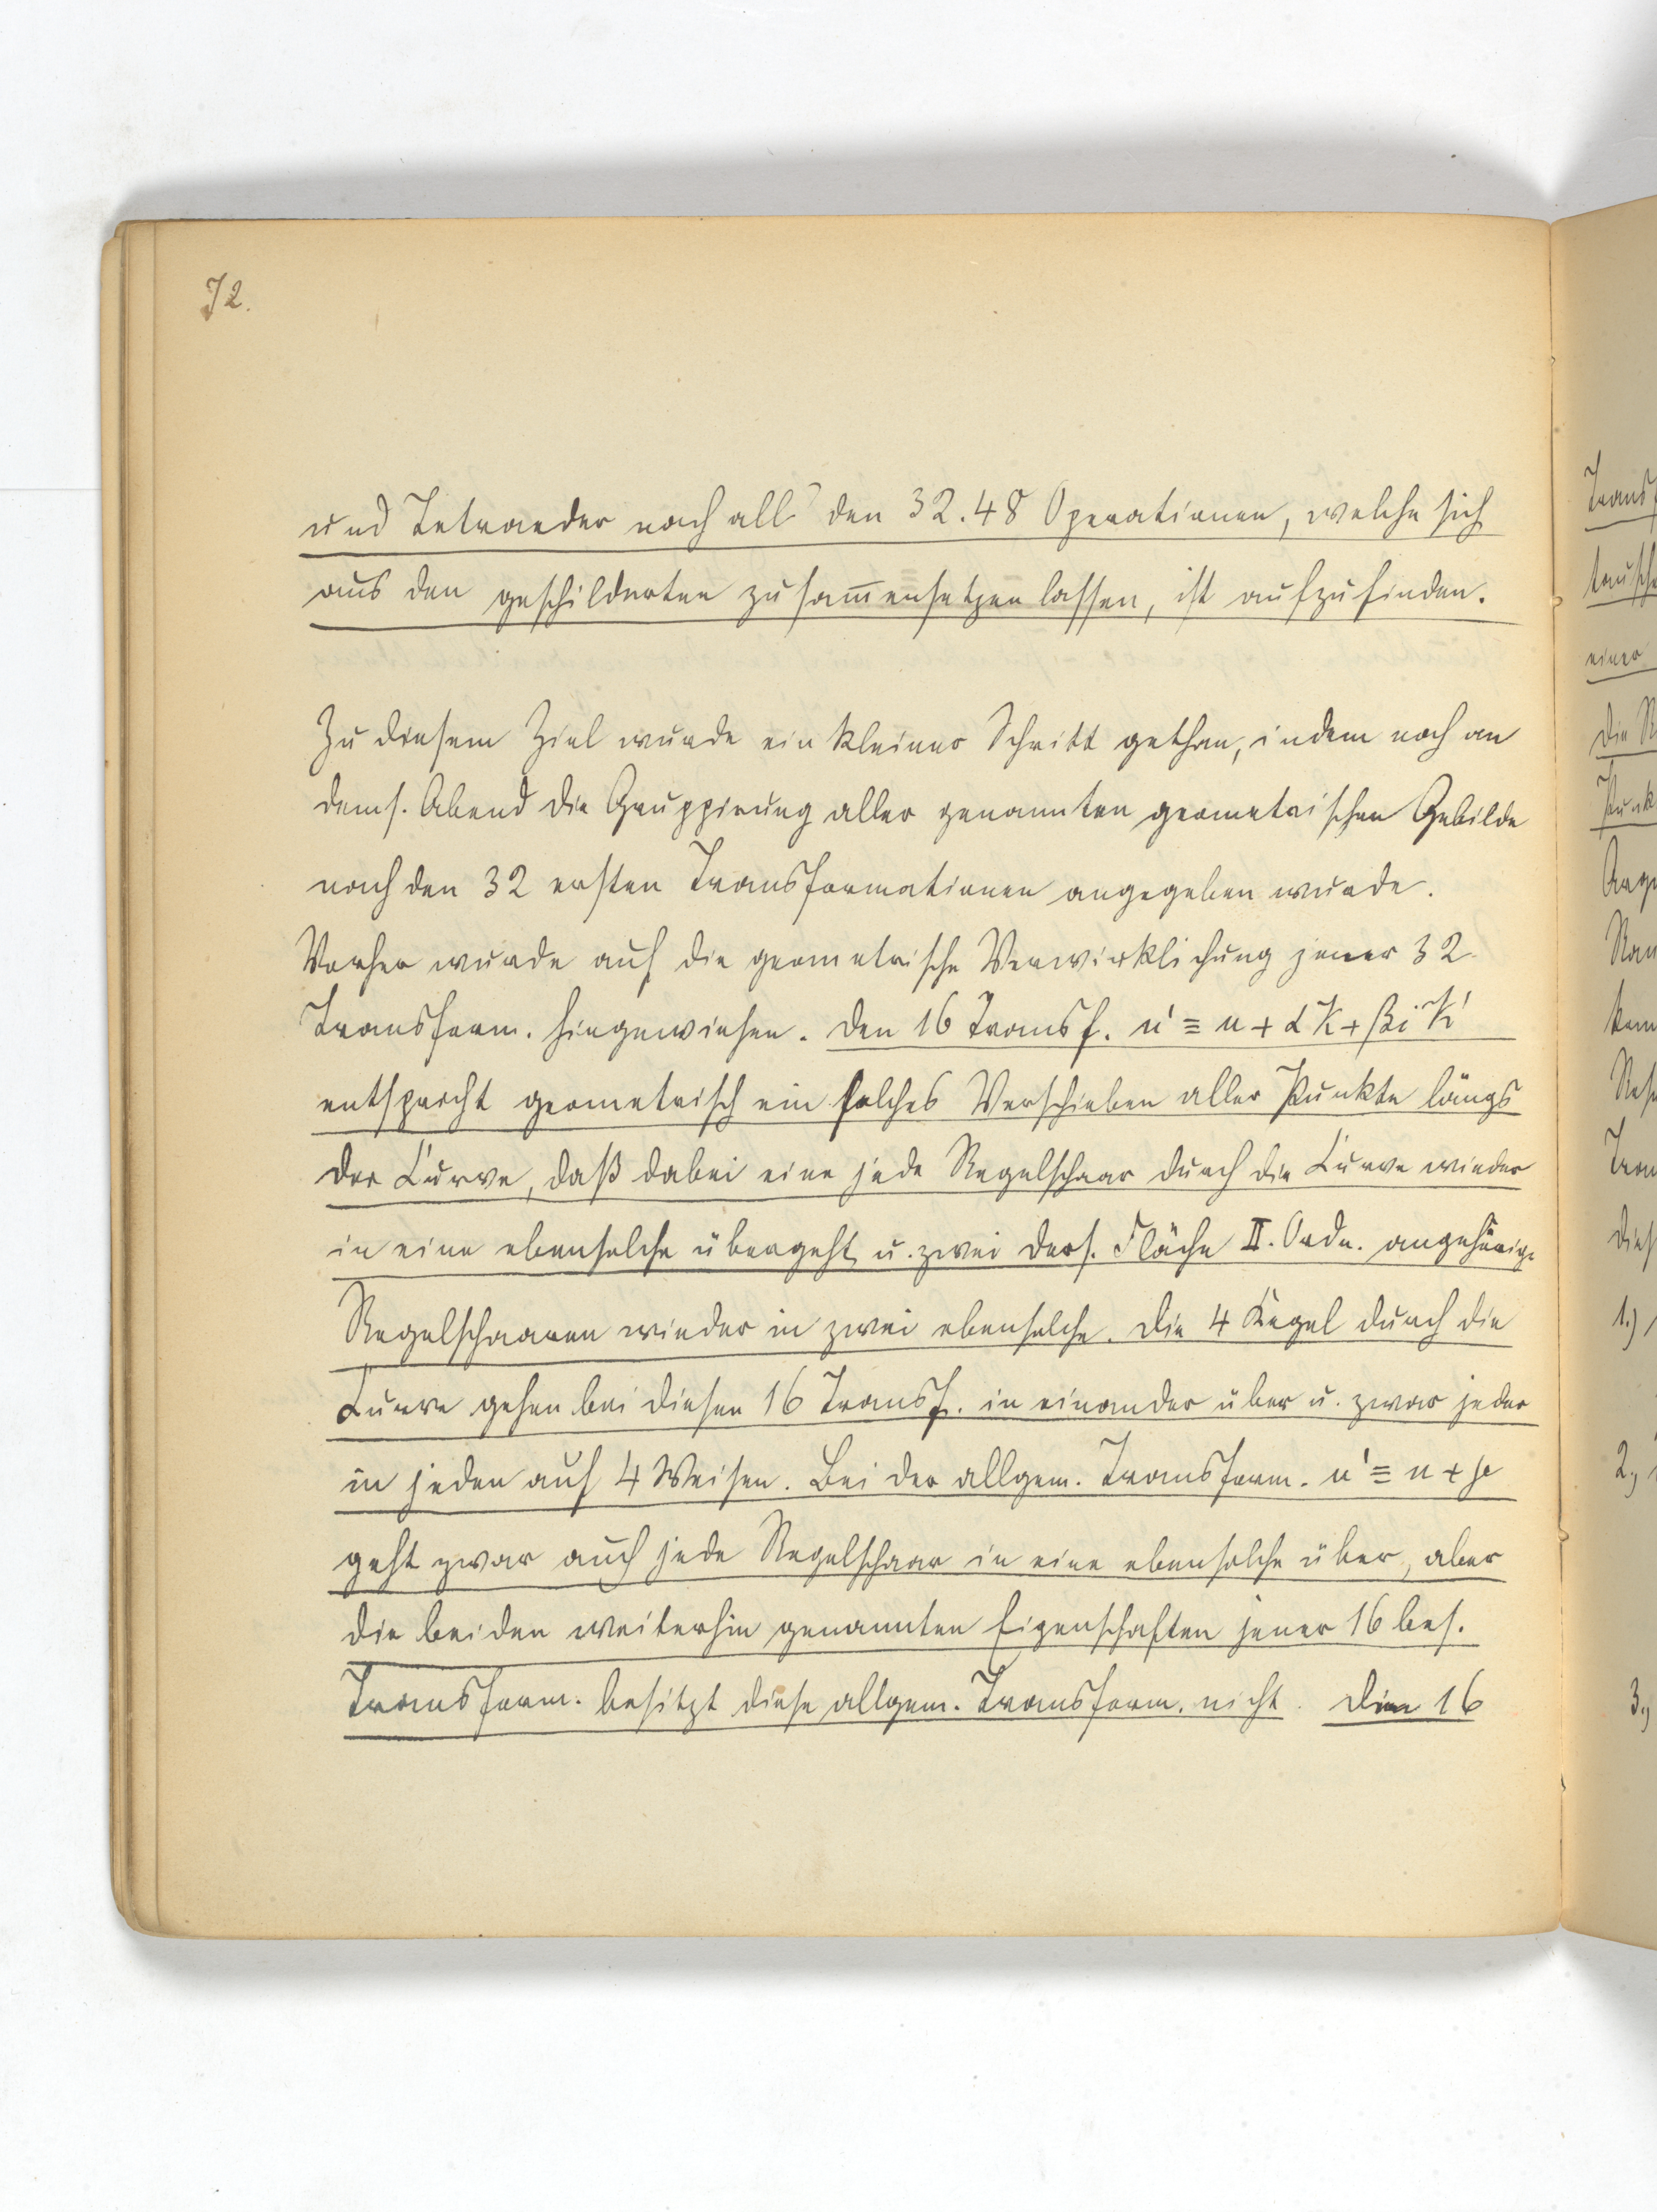 72.
und Tetraeder nach all' den 32.48 Operationen, welche sich
aus den geschilderten zusam̅ensetzen lassen, ist aufzufinden.
Zu diesem Ziel wurde ein kleiner Schritt gethan, indem noch an
dems. Abend die Gruppirung aller genannten geometrischen Gebilde
nach den 32 ersten Transformationen angegeben wurde.
Vorher wurde auf die geometrische Verwirklichung jener 32
Transform. hingewiesen. Den 16 Transf. u' ≡ u + αK + βiK'
entspricht geometrisch ein solches Verschieben aller Punkte längs
der Curve, daß dabei eine jede Regelschaar durch die Curve wieder
in eine ebensolche übergeht u. zwei ders. Fläche II. Ordn. angehörige
Regelschaaren wieder in zwei ebensolche. Die 4 Kegel durch die
Curve gehen bei diesen 16 Transf. in einander über u. zwar jeder
in jeden auf 4 Weisen. Bei der allgem. Transform. u' ≡ u + μ
geht zwar auch jede Regelschaar in eine ebensolche über, aber
die beiden weiterhin genannten Eigenschaften jener 16 bes.
Transform. besitzt diese allgem. Transform. nicht. Die 16
1.)
2.)
3.)